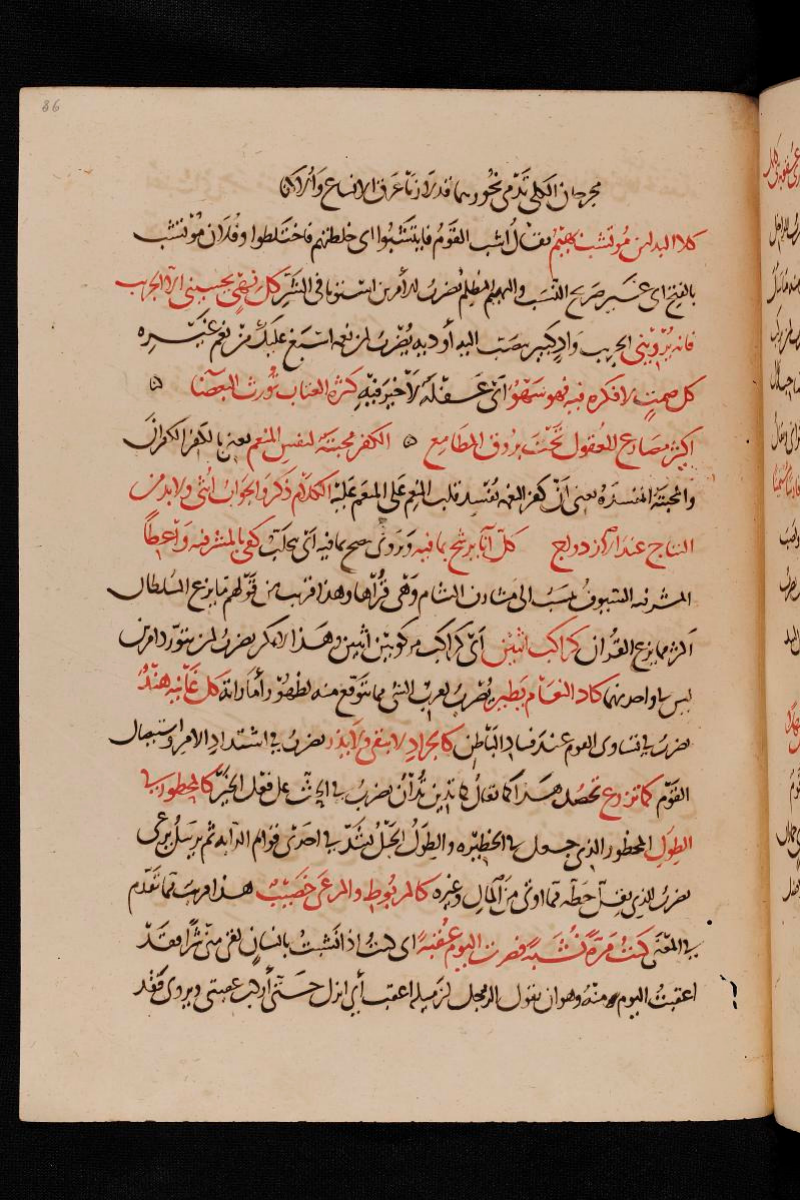 86
كلا البدلين مؤتشب بهيم يقال أشب القوم فايتشبوا اى خلطتهم فاختلطوا وفلان مؤتشب
بالفتح اى غير صريح النسب والبهيم المظلم يضرب للامرين استويا فى الشر كل نهر يحسينى الا الجريب
فانه يرويني الجريب واد كبير ينصب اليه أودية يضرب لمن نعمه اسبغ عليك من نعم غيره
كل صمت لا فكرة فيه فهو سهو أى غفلة لا خير فيه كثرة العتاب تورث البغضا
اكثر مصارع العقول تحت بروق المطامع الكفر مخبثة لنفس المنعم يعنى بالكفر الكفران
والمخبثة المفسدة يعنى أن كفر النعمة يفسد قلب المنعم على المنعم عليه الكلام ذكر والجواب أنثى ولا بد من
النتاج عند الازدواج كل انا يرشح بما فيه ويروى ينضح بما فيه أى يتحلب كفى بالمشرفية واعظا
المشرفية السيوف نسبت الى مشارف الشام وهى قراها وهذا قريب من قولهم ما يزع السلطان
اكثر مما يزع القران كراكب اثنين أى كراكب مركوبين اثنين وهذا لا يمكن يضرب لمن يتردد امرين
ليس في واحد منهما كاد النعام يطير يضرب لقرب الشئ مما يتوقع منه لظهور أماراته كل غانية هند
يضرب في تساوى القوم عند فساد الباطن كالجراد لا يبقى ولا يذر يضرب في اشتداد الامر واستيصال
القوم كما تزرع تحصد هذا كما يقال كما تدين تدان يضرب في الحث على فعل الخير كالمحظور في
الطول المحظور الذى جعل في الحظيرة والطول الحبل يشد في احدى قوائم الدابة ثم يرسل يرعى
يضرب للذى يقل حظه مما اوتى من المال وغيره كالمربوط والمرعى خصيب هذا قريب مما تقدم
في المعنى كنت مرة نشبة فصرت اليوم عقبة اى كنت اذا نشبت بانسان لقى منى شرا فقد
اعقبت اليوم منه وهو ان يقول الرجل لزميله اعقب أى انزل حتى أركب عقبتى ويروى فقد